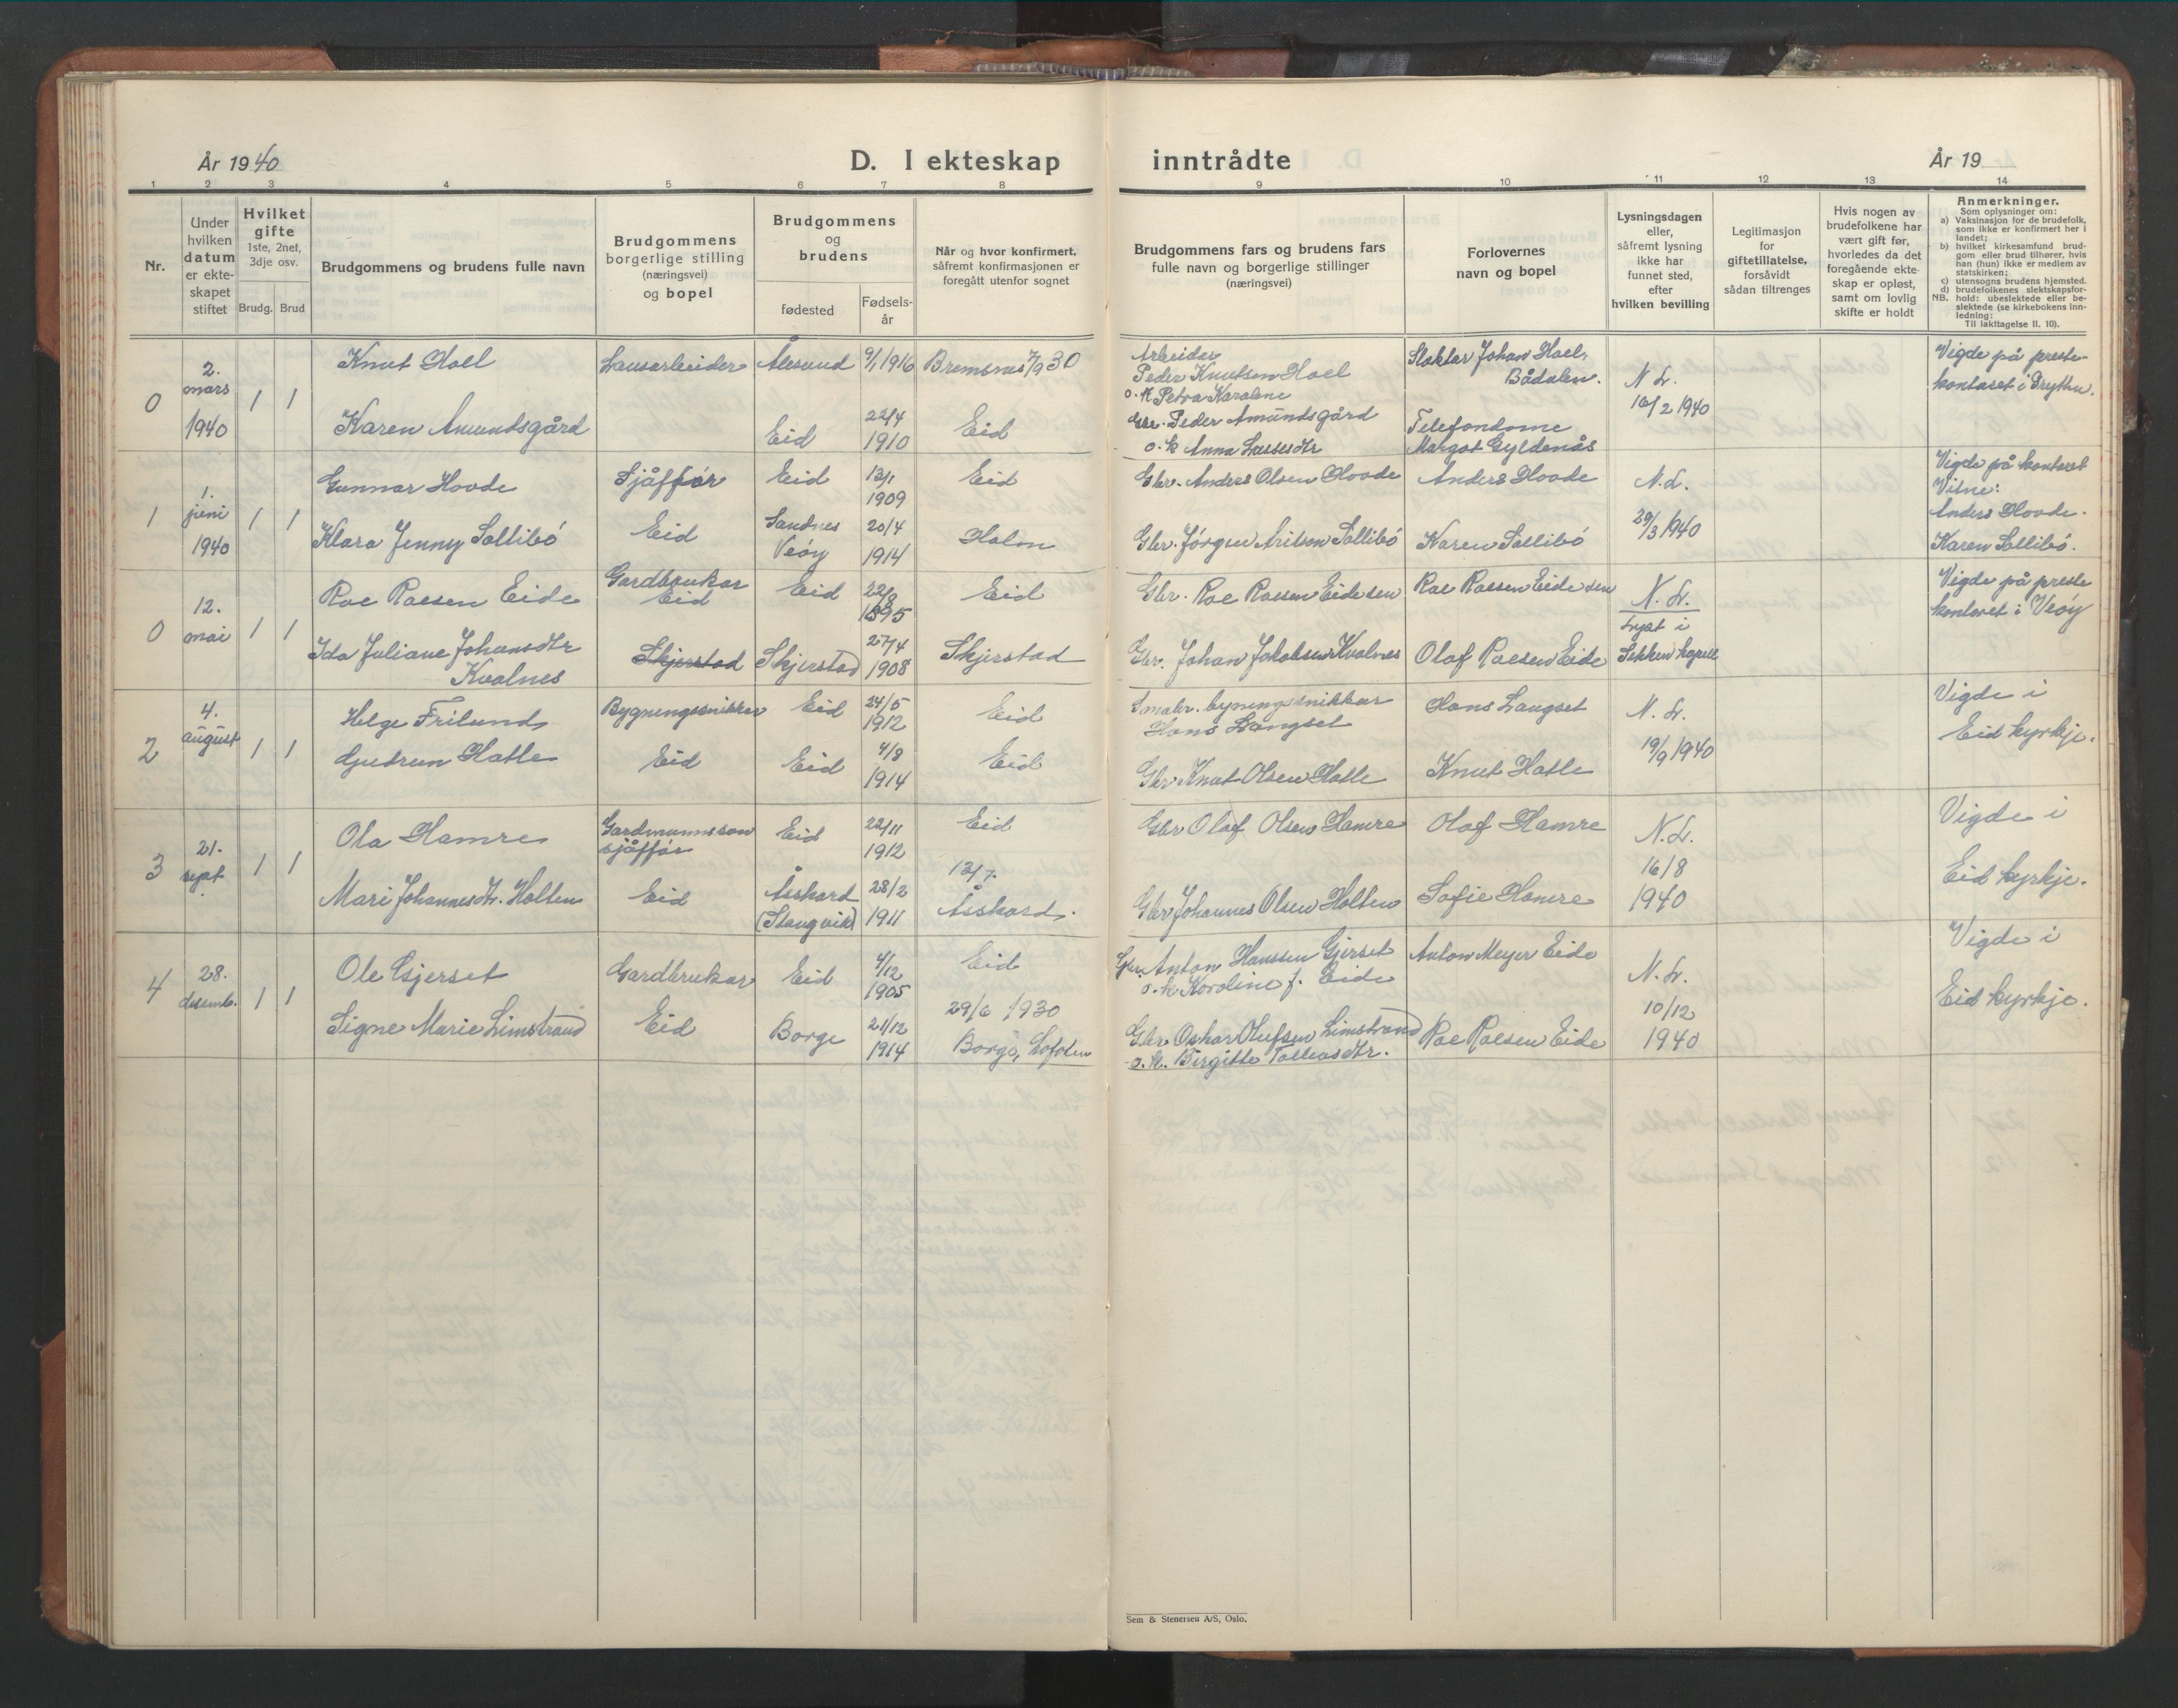 År 1940
D. I ekteskap inntrådte
År 19
1 2 3 4 5 6 7 8 9 10 11 12 13 14
Nr.
Under
hvilken
datum
er ekte-
skapet
stiftet
Hvilket
gifte
1ste, 2net,
3dje osv.
Brudg. Brud
Brudgommens og brudens fulle navn
Brudgommens
borgerlige stilling
(næringsvei)
og bopel
Brudgommens
og
brudens
fødested
Fødsels-
år
Når og hvor konfirmert,
såfremt konfirmasjonen er
foregått utenfor sognet
Brudgommens fars og brudens fars
fulle navn og borgerlige stillinger
(næringsvei)
Forlovernes
navn og bopel
Lysningsdagen
eller,
såfremt lysning
ikke har
funnet sted,
efter
hvilken bevilling
Legitimasjon
for
giftetillatelse,
forsåvidt
sådan tiltrenges
Hvis nogen av
brudefolkene har
vært gift før,
hvorledes da det
foregående ekte-
skap er opløst,
samt om lovlig
skifte er holdt
Anmerkninger.
Som oplysninger om:
a) Vaksinasjon for de brudefolk,
som ikke er konfirmert her i
landet;
b) hvilket kirkesamfund brud-
gom eller brud tilhører, hvis
han (hun) ikke er medlem av
statskirken;
c) utensogns brudens hjemsted.
d) brudefolkenes slektskapsfor-
NB. hold: ubeslektede eller be-
slektede (se kirkebokens inn-
ledning:
Til iakttagelse II. 10).
0
2.
mars
1940
1 1
Knut Hoel
Karen Amundsgård
Lausarbeider
Ålesund 9/1 1916 Bremsnes 7/9 30
Eid
22/4
1910
Eid
Arbeider
Peder Knutsen Hoel
o. k Petra Karoline
Gbr. Peder Amundsgård
o. k Anna Lassesdtr
Slaktar Johan Hoel,
Bådalen.
Telefondame
Margot Gyldenås
N L.
16/2 1940
Vigde på preste-
kontoret i Grytten.
1
1.
juni
1940
1 1
Gunnar Hovde
Klara Jenny Sollibö
Sjåffør
Eid
Eid
13/1
1909
Eid
Sandnes
Veöy
20/4
1914
Holm
Gbr. Anders Olsen Hovde
Gbr. Jörgen Arilsen Sollibö
Anders Hovde
Karen Sollibö
N. L.
29/3 1940
Vigde på kontoret
Vitne:
Anders Hovde.
Karen Sollibö.
0
12.
mai
1 1
Roe Roesen Eide
Ida Juliane Johansdtr
Kvalnes
Gardbrukar
Eid
Skjerstad
Eid
22/8
1895
Eid
Skjerstad
27/4
1908
Skjerstad
Gbr. Roe Roesen Eide sen
Gbr. Johan Jakobsen Kvalnes
Roe Roesen Eide sen
Olaf Roesen Eide
N. L.
Lyst i
Sekken kapell
Vigde på preste
kontoret i Veöy
2
4.
august
1 1
Helge Frilund
Gudrun Hatle
Bygningssnikker
Eid
Eid
24/5
1912
Eid
Eid
4/8
1914
Eid
Smabr. bygningssnikkar
Hans Langset
Gbr Knut Olsen Hatle
Hans Langset
Knut Hatle
N. L.
19/9 1940
Vigde i
Eid kyrkje.
3
21.
sept.
1 1
Ola Hamre
Mari Johannesdtr. Holten
Gardmannsson
sjåffør
Eid
Eid
22/11
1912
Eid
Åsskard
(Stangvik)
28/2
1911
13/7.
Åsskard.
Gbr Olaf Olsen Hamre
Gbr Johannes Olsen Holten
Olaf Hamre
Sofie Hamre
N. L.
16/8
1940
Vigde i
Eid kyrkje.
4
28.
desemb.
1 1
Ole Gjerset
Signe Marie Limstrand
Gardbrukar
Eid
Eid
4/12
1905
Eid
Borge
21/12
1914
29/6 1930
Borge, Lofoten
Gbr. Anton Hanssen Gjerset
o. k Karoline f. Eide
Gbr Oskar Olufsen Limstrand
o. k. Birgitte Tolleasdtr.
Anton Meyer Eide
Roe Roesen Eide
N. L.
10/12
1940
Vigde i
Eid kyrkje.
Sem & Stenersen A/S, Oslo.